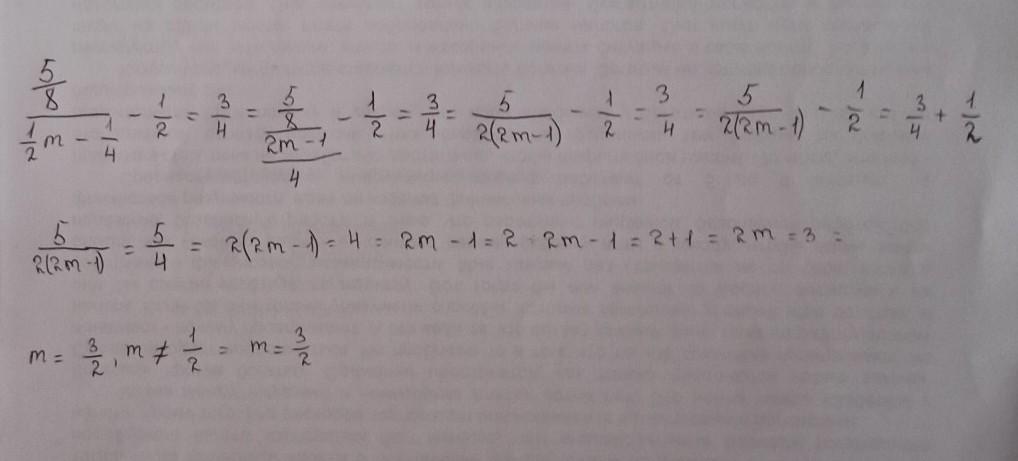 \frac{\frac{5}{8}}{\frac{1}{2}m - \frac{1}{4}} - \frac{1}{2} = \frac{3}{4} = \frac{\frac{5}{8}}{\frac{2m-1}{4}} - \frac{1}{2} = \frac{3}{4} = \frac{5}{2(2m-1)} - \frac{1}{2} = \frac{3}{4} = \frac{5}{2(2m-1)} - \frac{1}{2} = \frac{3}{4} + \frac{1}{2}
\frac{5}{2(2m-1)} = \frac{5}{4} = 2(2m-1) = 4 = 2m - 1 = 2 = 2m - 1 = 2+1 = 2m = 3 =
m = \frac{3}{2}, m ≠ \frac{1}{2} = m = \frac{3}{2}